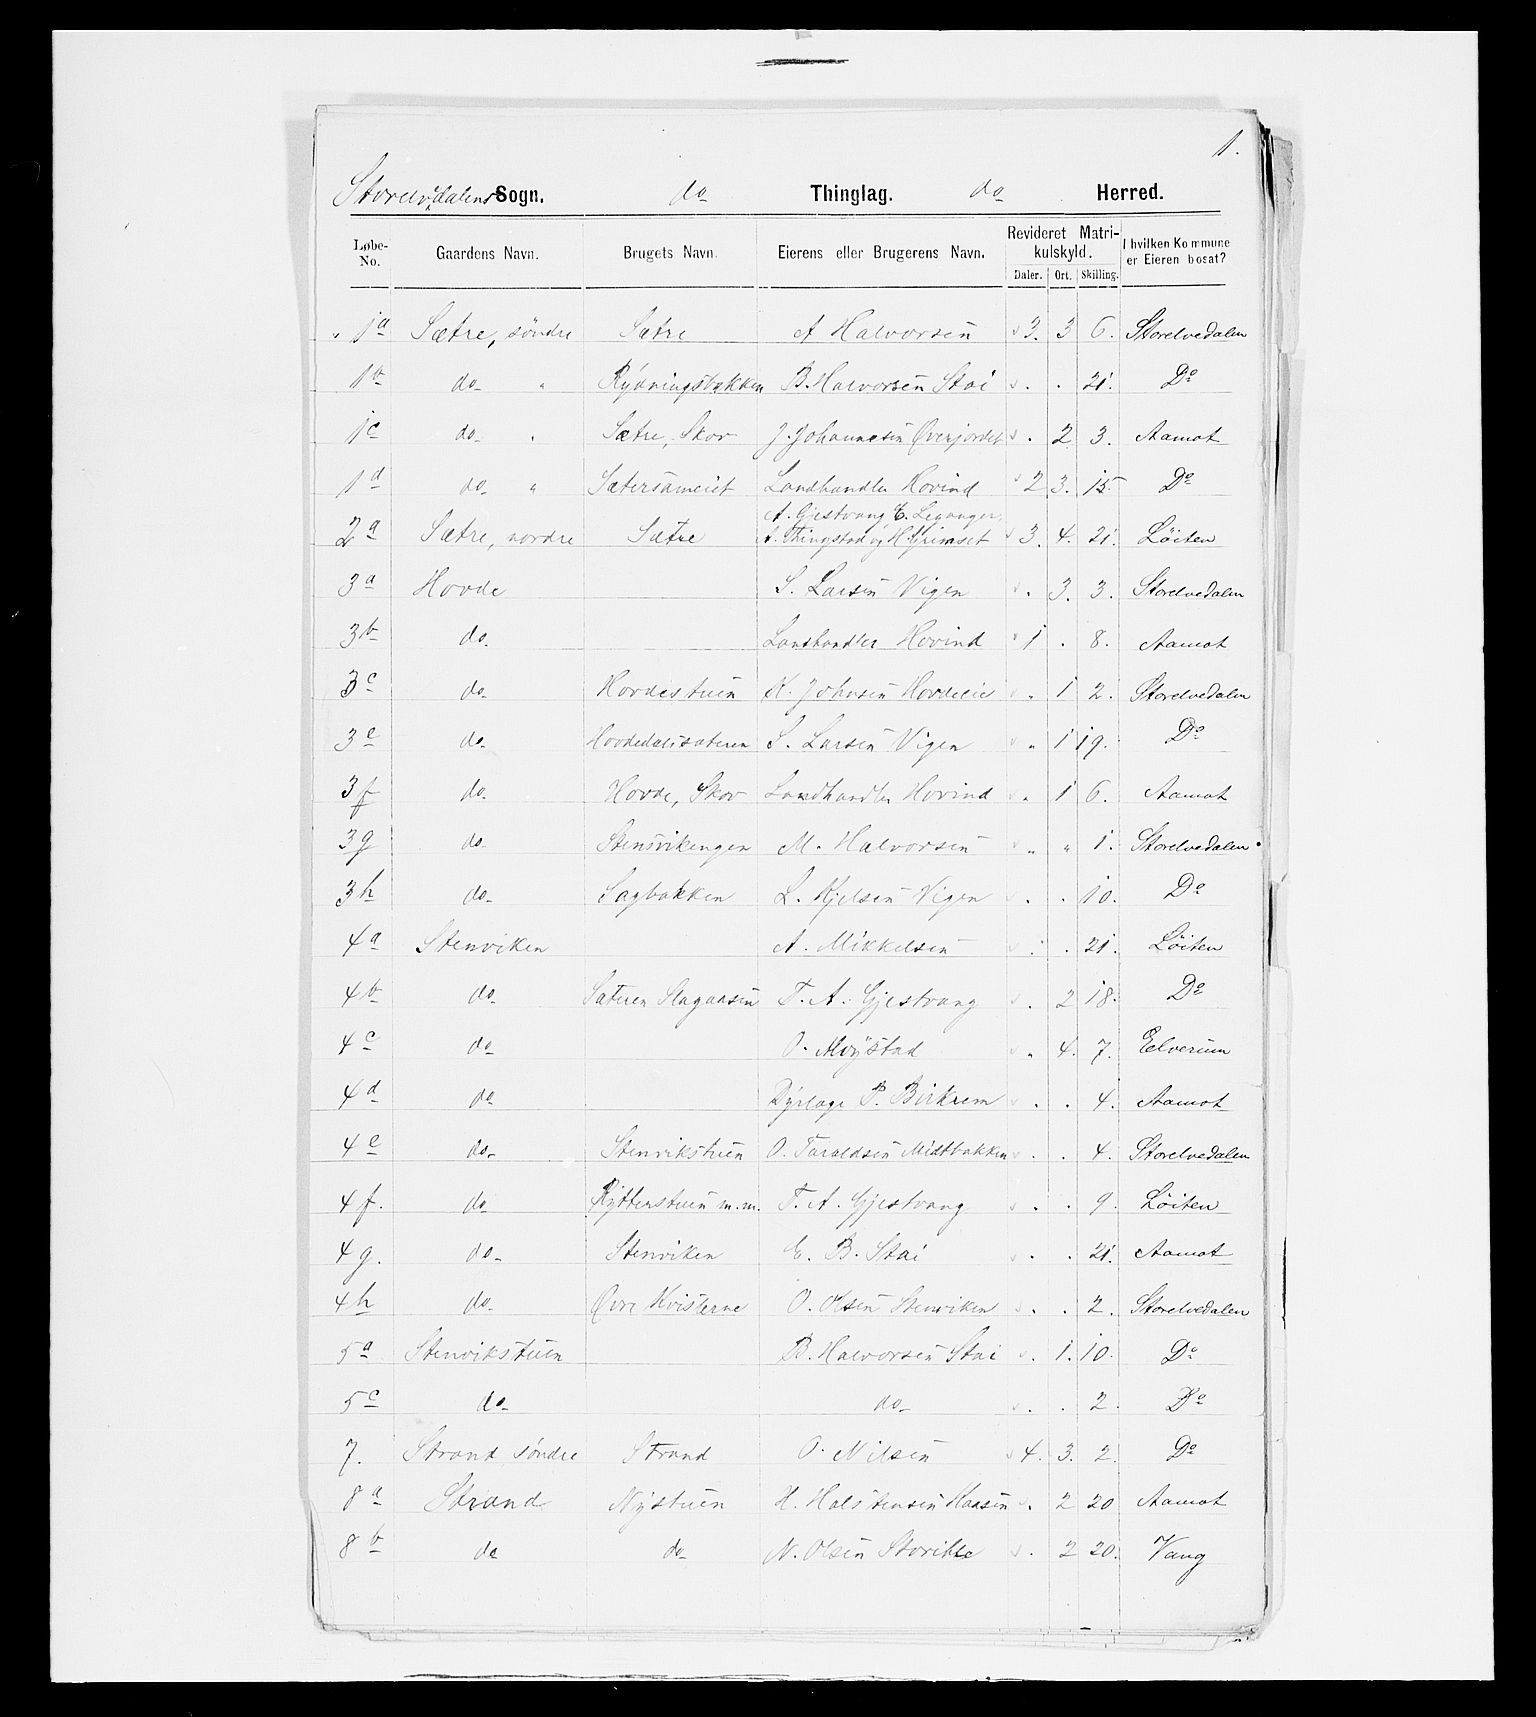 1.
Storelvedalens Sogn. do Thinglag. do Herred.
Løbe-No. Gaardens Navn. Brugets Navn. Eierens eller Brugerens Navn. Revideret Matrikulskyld. Daler. Ort. Skilling. I hvilken Kommune er Eieren bosat?
1a Sætre, søndre Sætre A Halvorsen 3. 3 6. Storelvedalen
1b do " Rydningsbakken B. Halvorsen Stai . . 21. Do
1c do " Sætre, Skov J. Johannesen Øverjordet . 2 3. Aamot
1d do " Sætersameiet Landhandler Hovind 2 3. 15 Do
2a Sætre, nordre Sætre A. Gjestvang E. Leganger, A. Thingstad og H. Grimset 3. 4. 21. Löiten
3a Hovde S. Larsen Vigen . 3. 3. Storelvedalen
3b do Landhandler Hovind 1 . 8. Aamot
3c do Hovdestuen K. Johnsen Hovdeeie . 1 2. Storelvedalen
3e do Hovdedalssæteren S. Larsen Vigen " 1 19. Do
3f do Hovde, Skov Landhandler Hovind " 1 6. Aamot
3g do Stensvikengen M. Halvorsen " " 1. Storelvedalen
3h do Sagbakken L. Kjelsen Vigen . . 10. Do
4a Stenviken A. Mikkelsen . . 21. Löiten
4b do Sæteren Slagaasen T. A. Gjestvang . 2 18. Do
4c do O. Møystad " 4. 7. Elverum
4d do Dyrlæge P. Birkrem . . 4. Aamot
4e do Stenvikstuen O. Taraldsen Midtbakken . . 4. Storelvedalen
4f. do Rytterstuen m.m. T. A. Gjestvang . . 9. Löiten
4g. do Stenviken E. B. Stai . . 21. Aamot
4h do Øvre Kvisterne O. Olsen Stenviken . . 2. Storelvedalen
5a Stenvikstuen B. Halvorsen Stai . 1. 10. Do
5c do do . . 2. Do
7. Strand søndre Strand O. Nilsen 4. 3. 2. Do
8a Strand Nystuen H. Halstensen Haasen . 2 20 Aamot
8b do do N. Olsen . 2 20. Vang